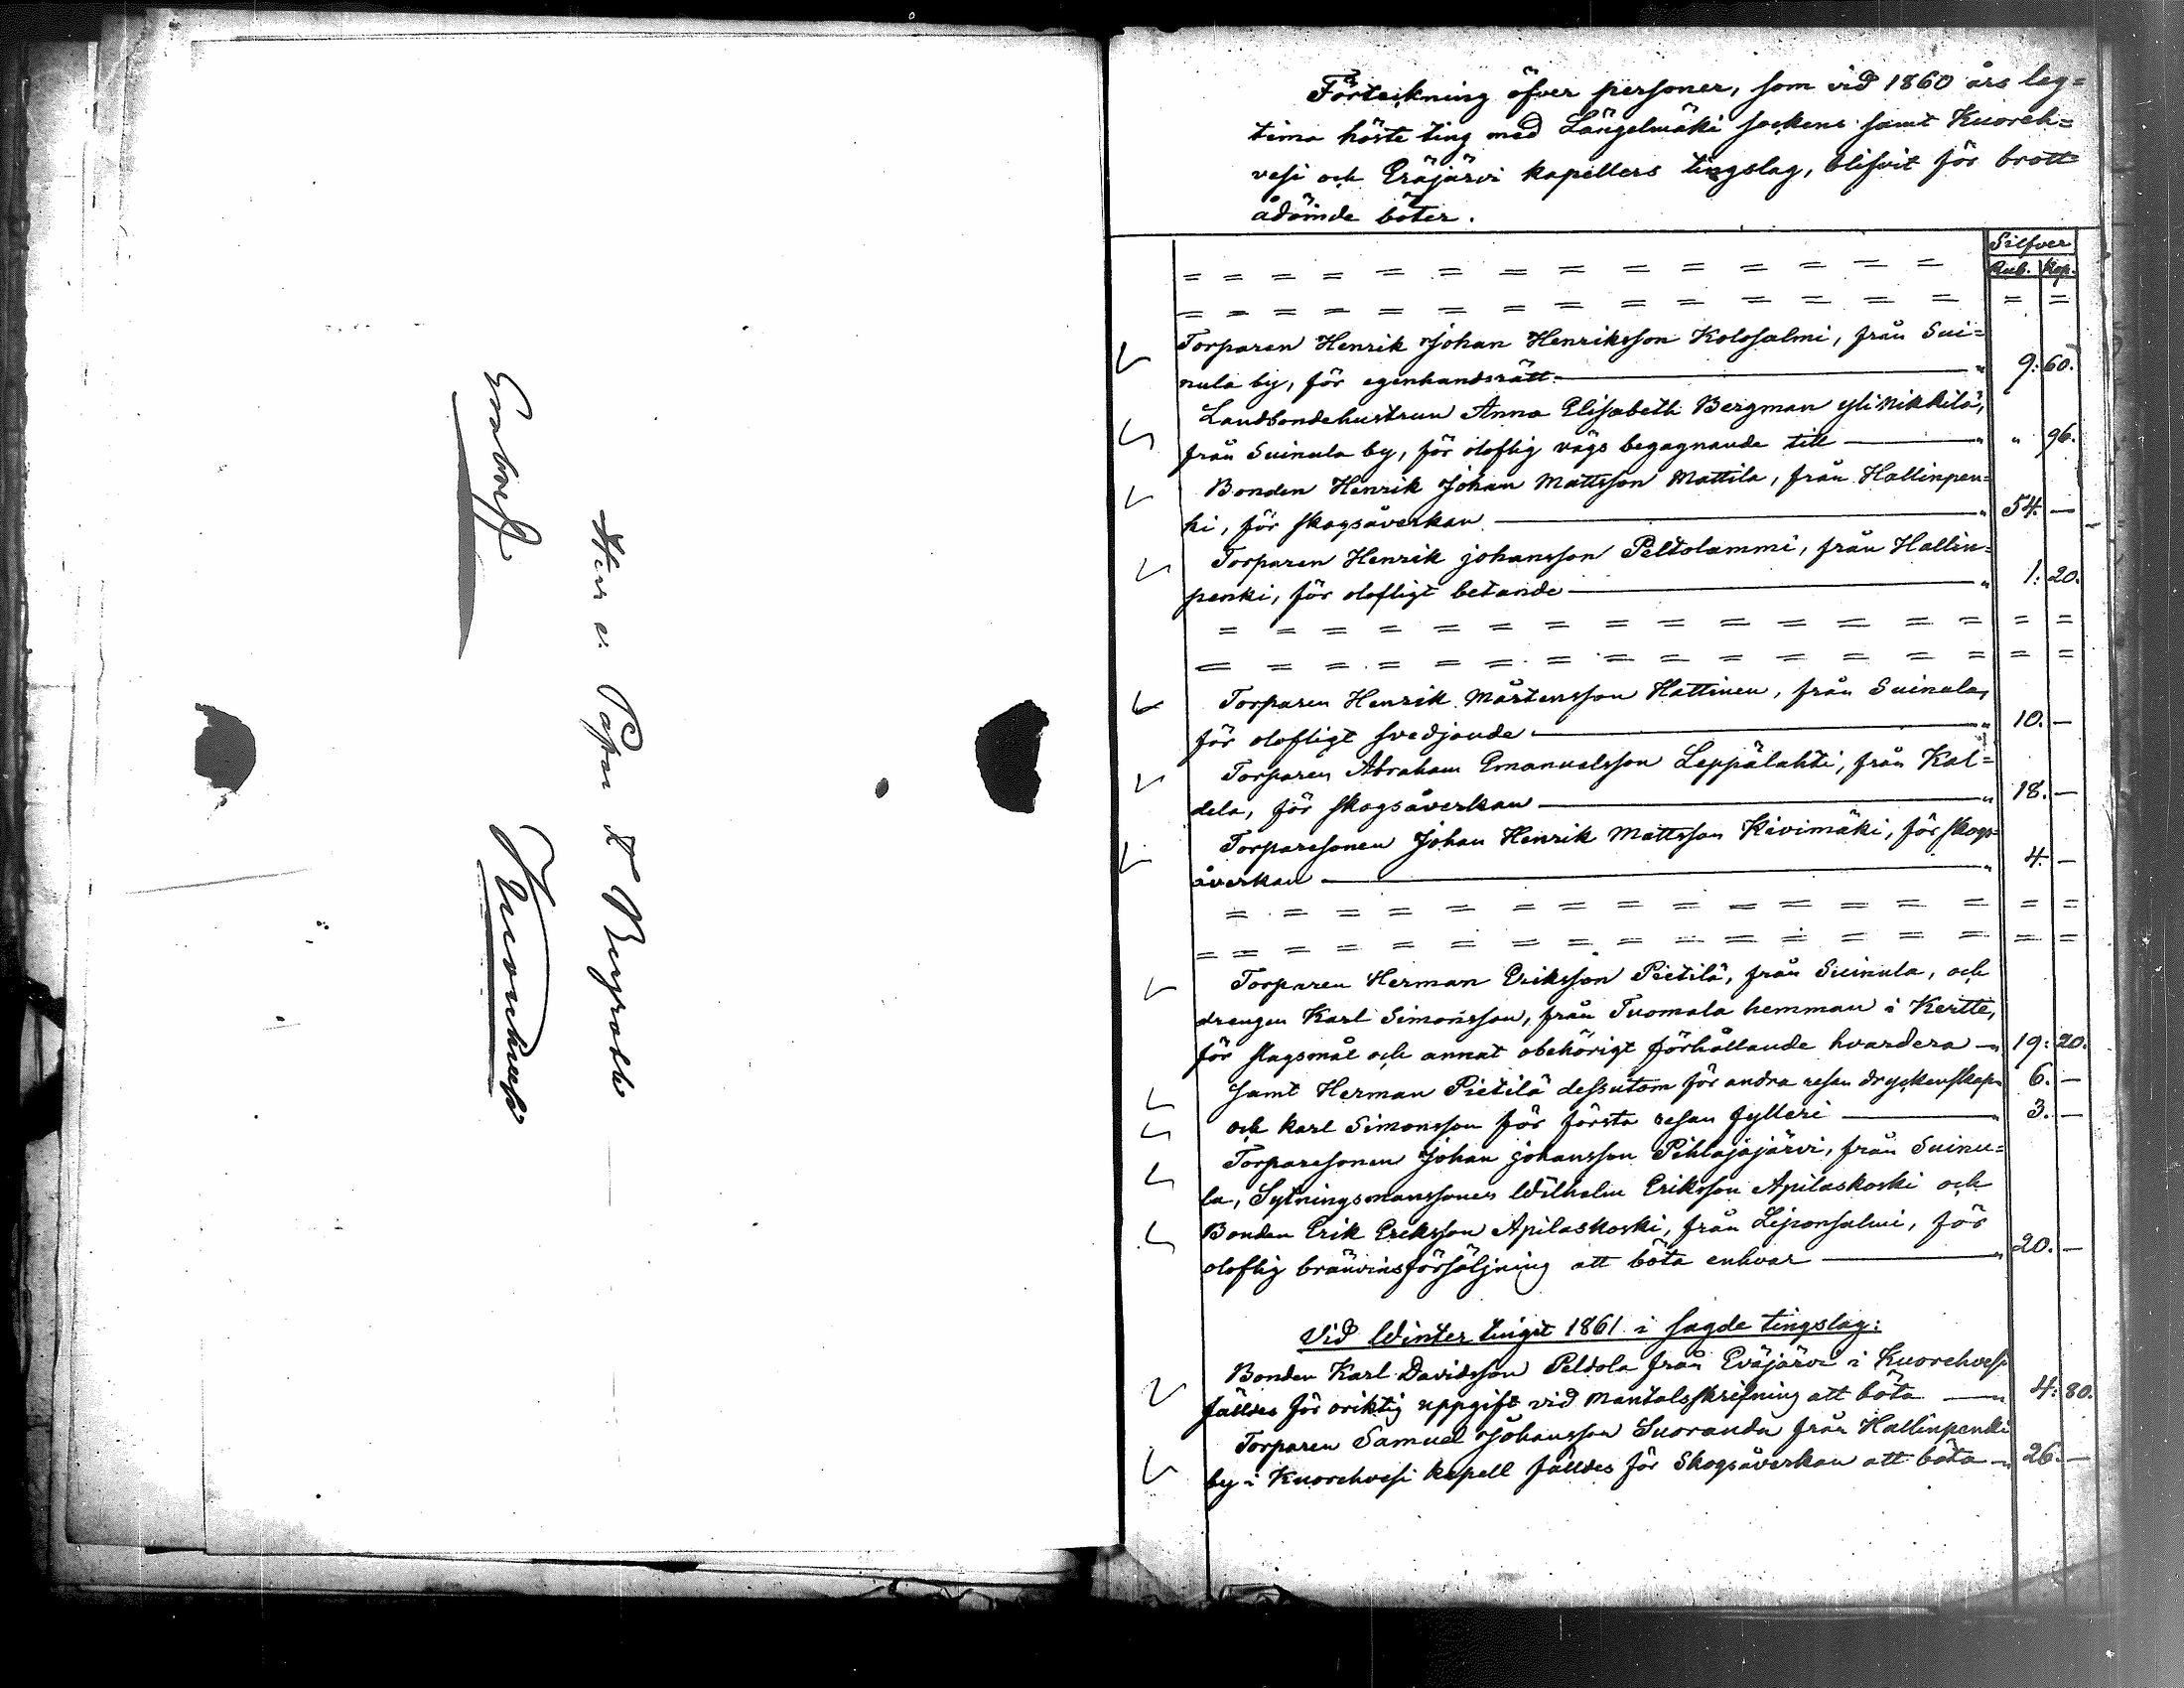 Herr v. Pastor
Kuorehvesi
Förteckning öfver personer, som vid 1860 års lag=
tima höste ting med Längelmäki sockens samt Kuoreh=
vesi och Eräjärvi kapellers tingslag, blifvit för brott
ådömde böter.
Silfver
Rub. Kop.
= = = = = = = = = = = = =
= = = = = = = = = = = = = = =
Torparen Henrik Johan Henriksson Kolosalmi, från Sui=
nula by, för egenhandsrätt — " 9: 60.
Landbondehustrun Anna Elisabeth Bergman yliNikkilä,
från Suinula by, för oloflig vägs begagnande till — " " 96.
Bonden Henrik Johan Mattsson Mattila, från Hallinpen=
ki, för skogsåverkan — " 54. —
Torparen Henrik Johansson Peltolammi, från Hallin=
penki, för olofligt betande — " 1: 20.
= = = = = = = = = = = = = = = =
= = = = = = = = = = = = = = = =
Torparen Henrik Mårtensson Hattinen, från Suinula,
för olofligt svedjande — " 10. —
Torparen Abraham Emanuelsson Leppälahti, från Kal=
dela, för skogsåverkan — " 18. —
Torparesonen Johan Henrik Mattsson Kivimäki, för skogs=
åverkan — " 4. —
= = = = = = = = = = = = = = = =
= = = = = = = = = = = = = = = =
Torparen Herman Eriksson Pietilä, från Suinula, och
drengen Karl Simonsson, från Tuomala hemman i Kertte,
för slagsmål och annat obehörigt förhållande hvardera — " 19: 20.
Samt Herman Pietilä dessutom för andra resan dryckenskap " 6. —
och Karl Simonsson för första resan fylleri — " 3. —
Torparesonen Johan Johansson Pihlajajärvi, från Suinu=
la, Sytningsmanssonen Wilhelm Eriksson Apilaskoski och
Bonden Erik Eriksson Apilaskoski, från Leponsalmi, för
oloflig bränvinsförsäljning att böta enhvar — " 20. —
Vid Winter tinget 1861 i sagde tingslag:
Bonden Karl Davidsson Peldola från Eväjärvi i Kuorehvesi
fälldes för oriktig uppgift vid mantalsskrifning att böta — " 4: 80.
Torparen Samuel Johansson Suoranda från Hallinpenki
by i Kuorehvesi kapell fälldes för Skogsåverkan att böta — " 26. —